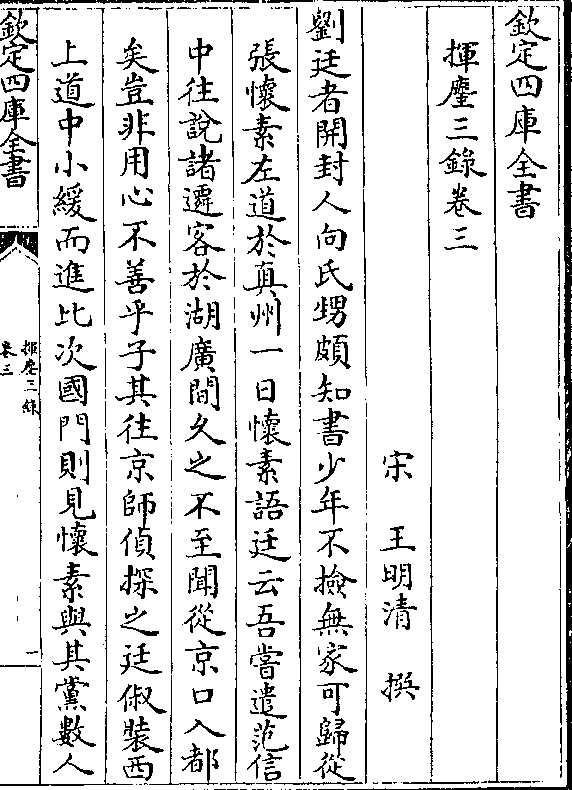 欽定四庫全書
揮麈三錄卷三
宋 王明清 撰
劉廷者開封人向氏甥頗知書少年不撿無家可歸從
張懷素左道於真州一日懷素語廷云吾嘗遣范信
中往說諸遷客於湖廣間久之不至聞從京口入都
矣豈非用心不善乎子其往京師偵探之廷俶裝西
上道中小緩而進比次國門則見懷素與其黨數人
欽定四庫全書
揮麈三錄
卷三
一